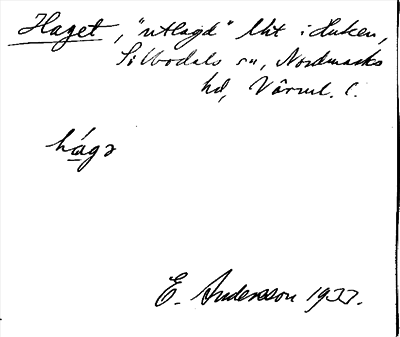 Haget, "utlagd" lht i Huken,
Silbodals sn, Nordmarks
hd, Värml. l.
hágə
E. Andersson 1933.